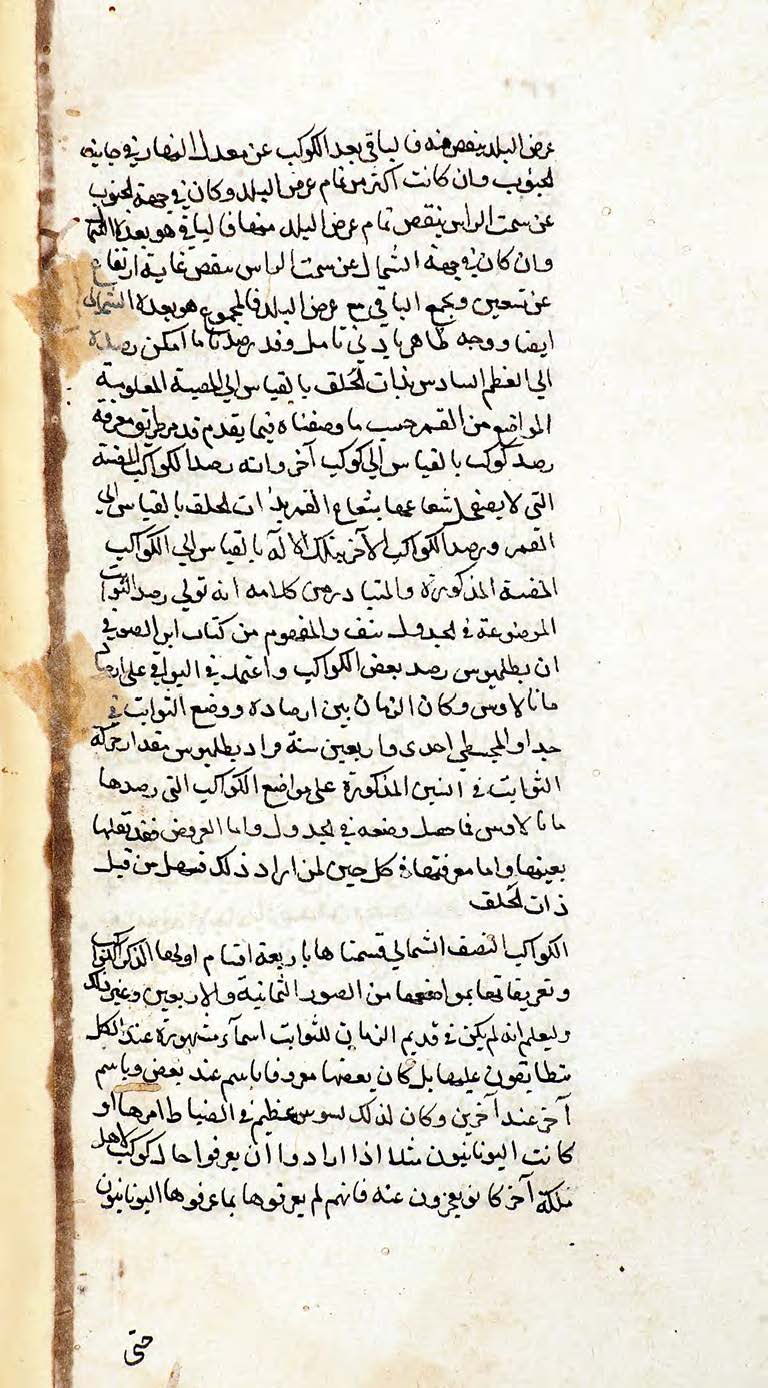 عرض البلد ينقص منه فالباقي بعد الكوكب عن معدل النهار في جانب
الجنوب وان كانت اكثر من تمام عرض البلد وكان في جهة الجنوب
عن سمت الراس ينقص تمام عرض البلد منها فالباقي هو بعده
وان كان في جهة الشمال عن سمت الراس ينقص غاية ارتفاع
عن تسعين ويجمع الباقي مع عرض البلد فالمجموع هو بعده الشمالي
ايضا ووجه ظاهر بادني تامل وقد رصدنا ما امكن رصده
الي العظم السادس بذات الحلق بالقياس الي المضيئة المعلومة
المواضع من القمر حسب ما وصفناه فيما يقدم قد مر طريق معرفة
رصد كوكب بالقياس الي كوكب آخر وانه رصد الكواكب المضيئة
التي لا يضمحل شعاعها بشعاع القمر بذات الحلق بالقياس الي
القمر ورصد الكواكب الآخر بتلك الآلة بالقياس الي الكواكب
المضيئة المذكورة والمتبادر من كلامه انه تولي رصد الثوابت
الموضوعة في الجدول بنفسه والمفهوم من كتاب ابن الصوفي
ان بطلميوس رصد بعض الكواكب واعتمد في البواقي على ارصاد
مانالاوس وكان الزمان بين ارصاده ووضع الثوابت في
جداول المجسطي احدى واربعين سنة فزاد بطلميوس مقدار حركة
الثوابت في السنين المذكورة على مواضع الكواكب التي رصدها
مانالاوس فما حصل وضعه في الجدول واما العروض فقد نقلها
بعينها واما معرفتها في كل حين لمن اراد ذلك فسهل من قبل
ذات الحلق
الكواكب النصف الشمالي قسمنا ها باربعة اقسام اولها الذكر الكواكب
وتعريفاتها بمواضعها من الصور الثمانية والاربعين وغير ذلك
وليعلم انه لم يكن في قديم الزمان للثوابت اسمآء مشهورة عند الكل
متطابقون عليها بل كان بعضها معروفا باسم عند بعض وباسم
آخر عند آخرين وكان لذلك عظيم في انضباط امرها او
كانت اليونانيون مثلا اذا ارادوا ان يعرفوا حال كوكب لاهل
مملكة آخر كانو يعجزون عنه فانهم لم يعرفوها بما عرفوها اليونانيون
حتى